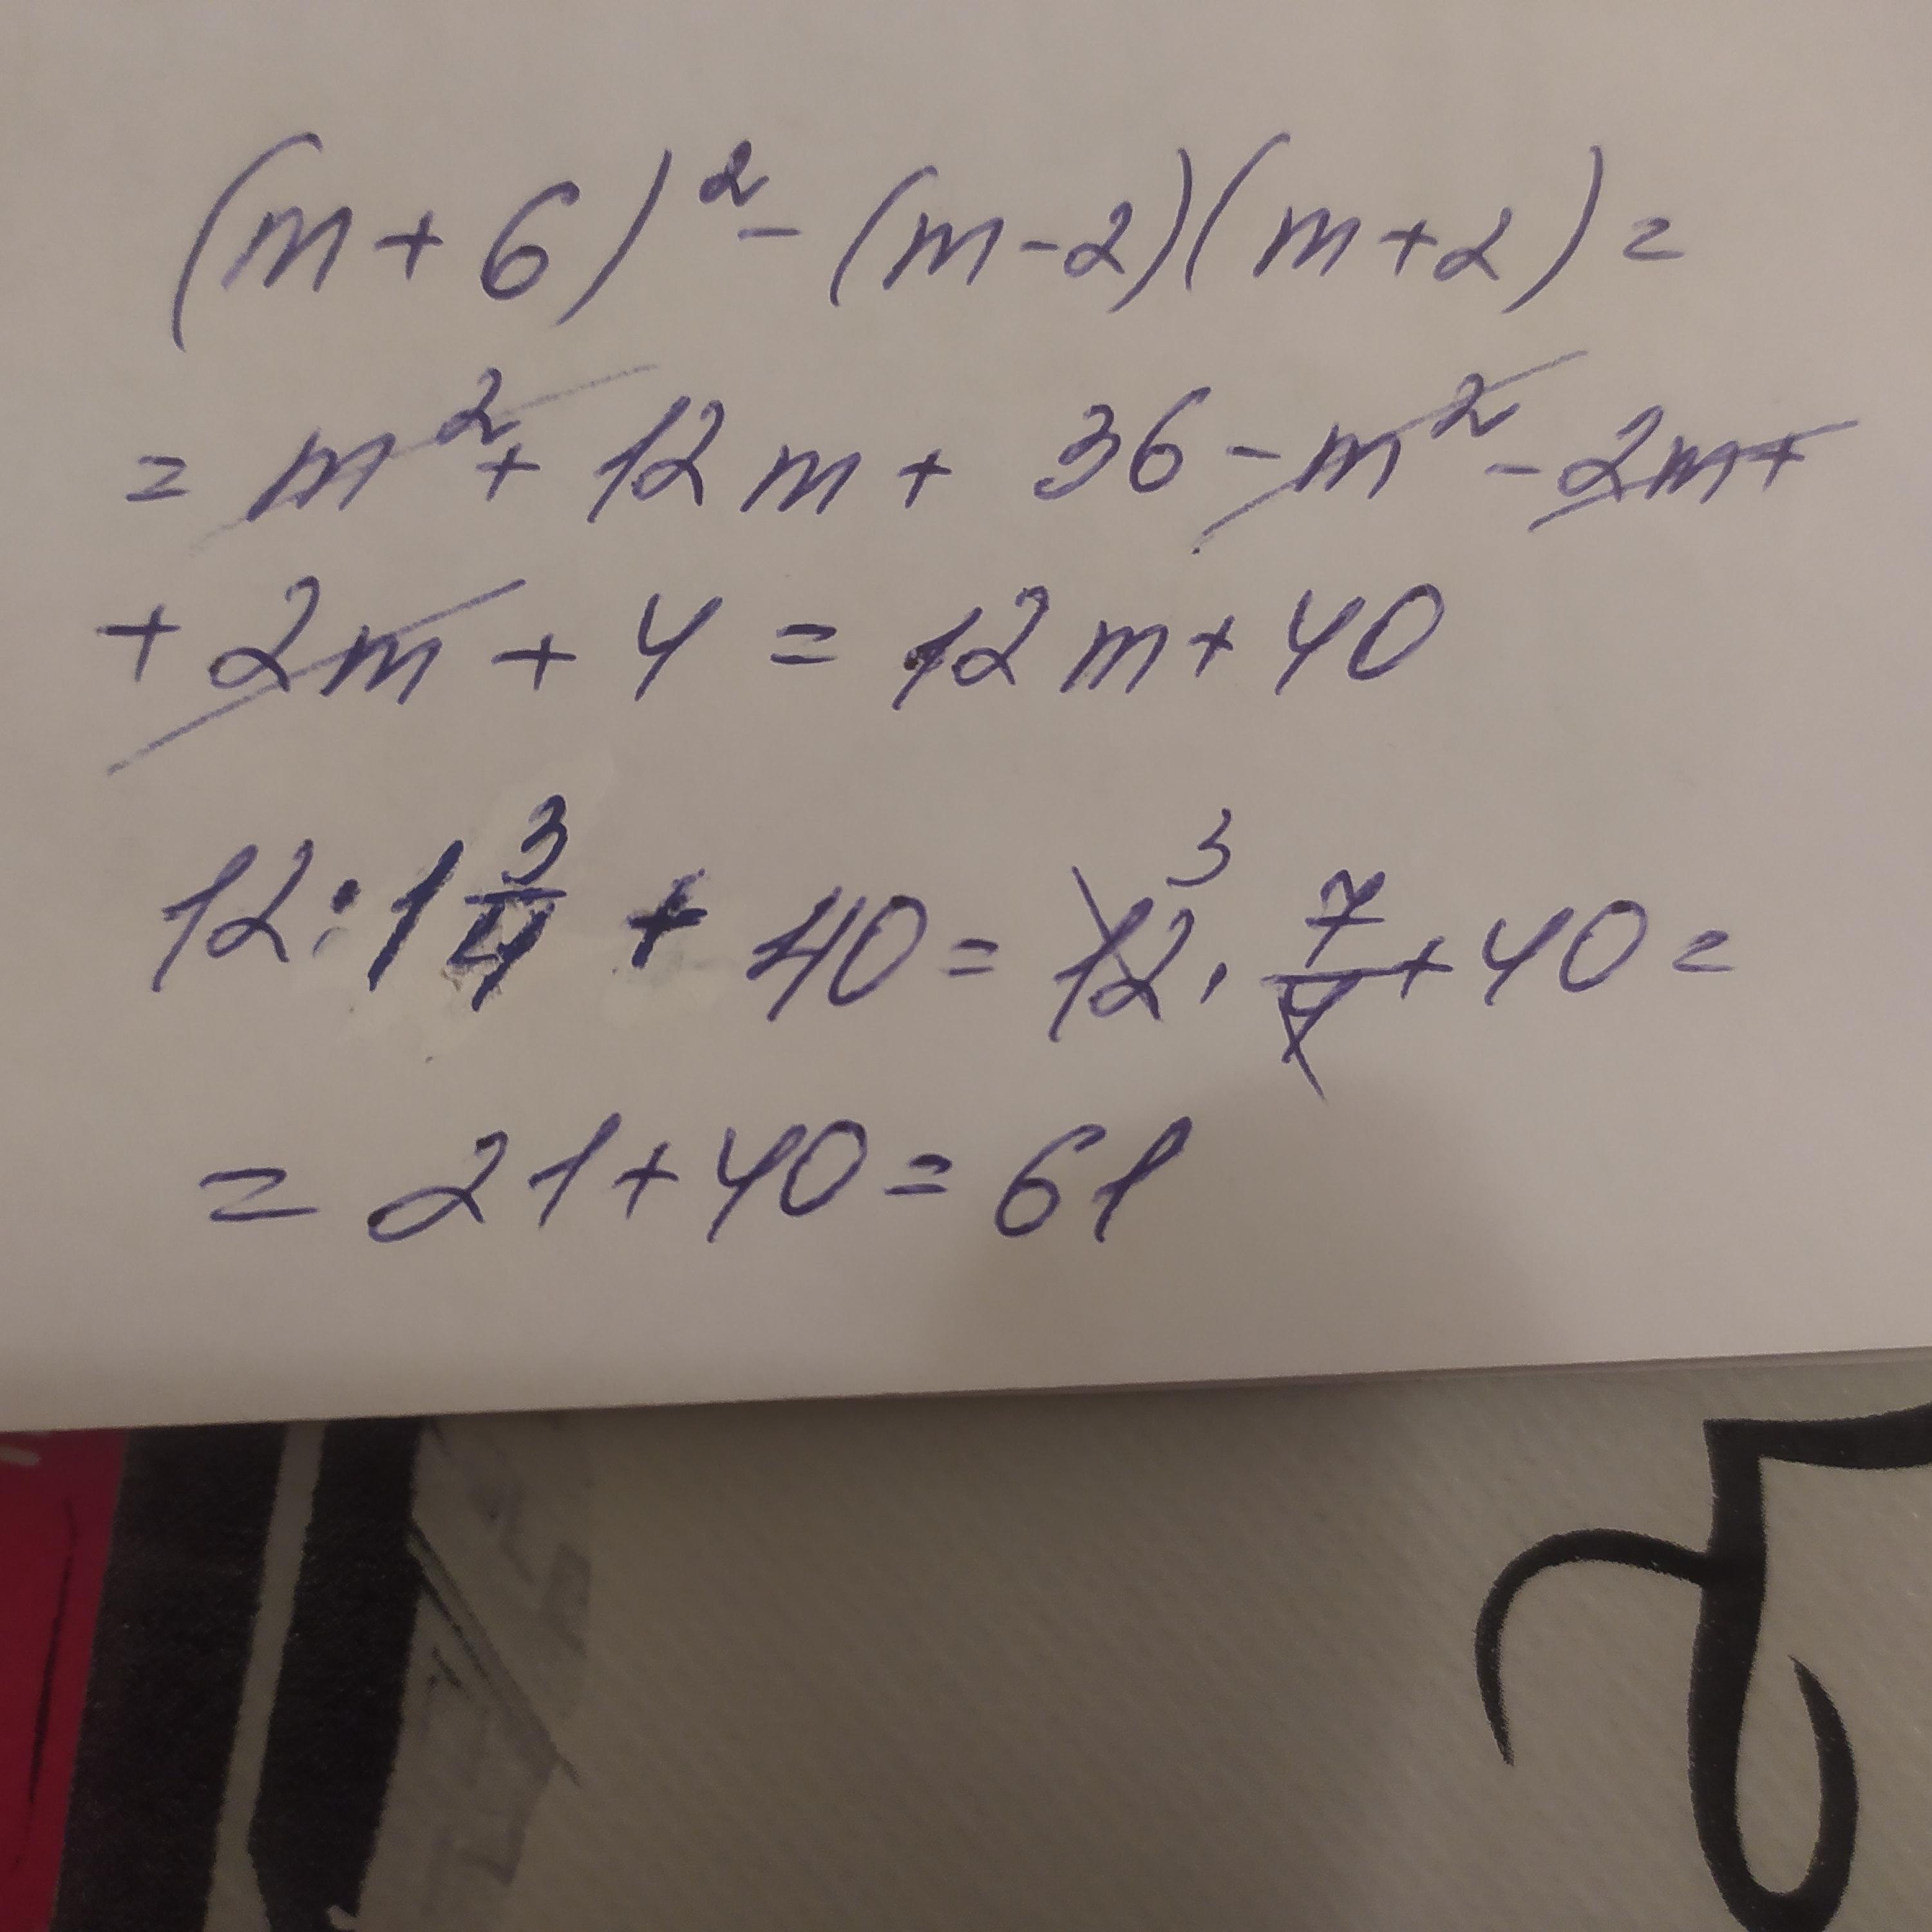 (m+6)² - (m-2)(m+2) =
= m² + 12m + 36 - m² - 2m +
+ 2m + 4 = 12m + 40
12 : 1 3/4 + 40 = 12 3 · 7/4 + 40 =
= 21 + 40 = 61